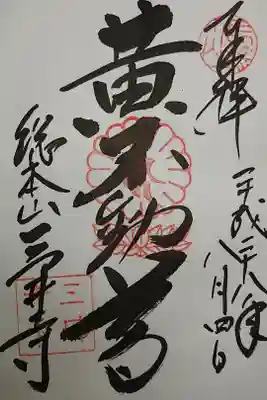 奉拝
平成二十八年
八月四日
黄不動尊
総本山三井寺